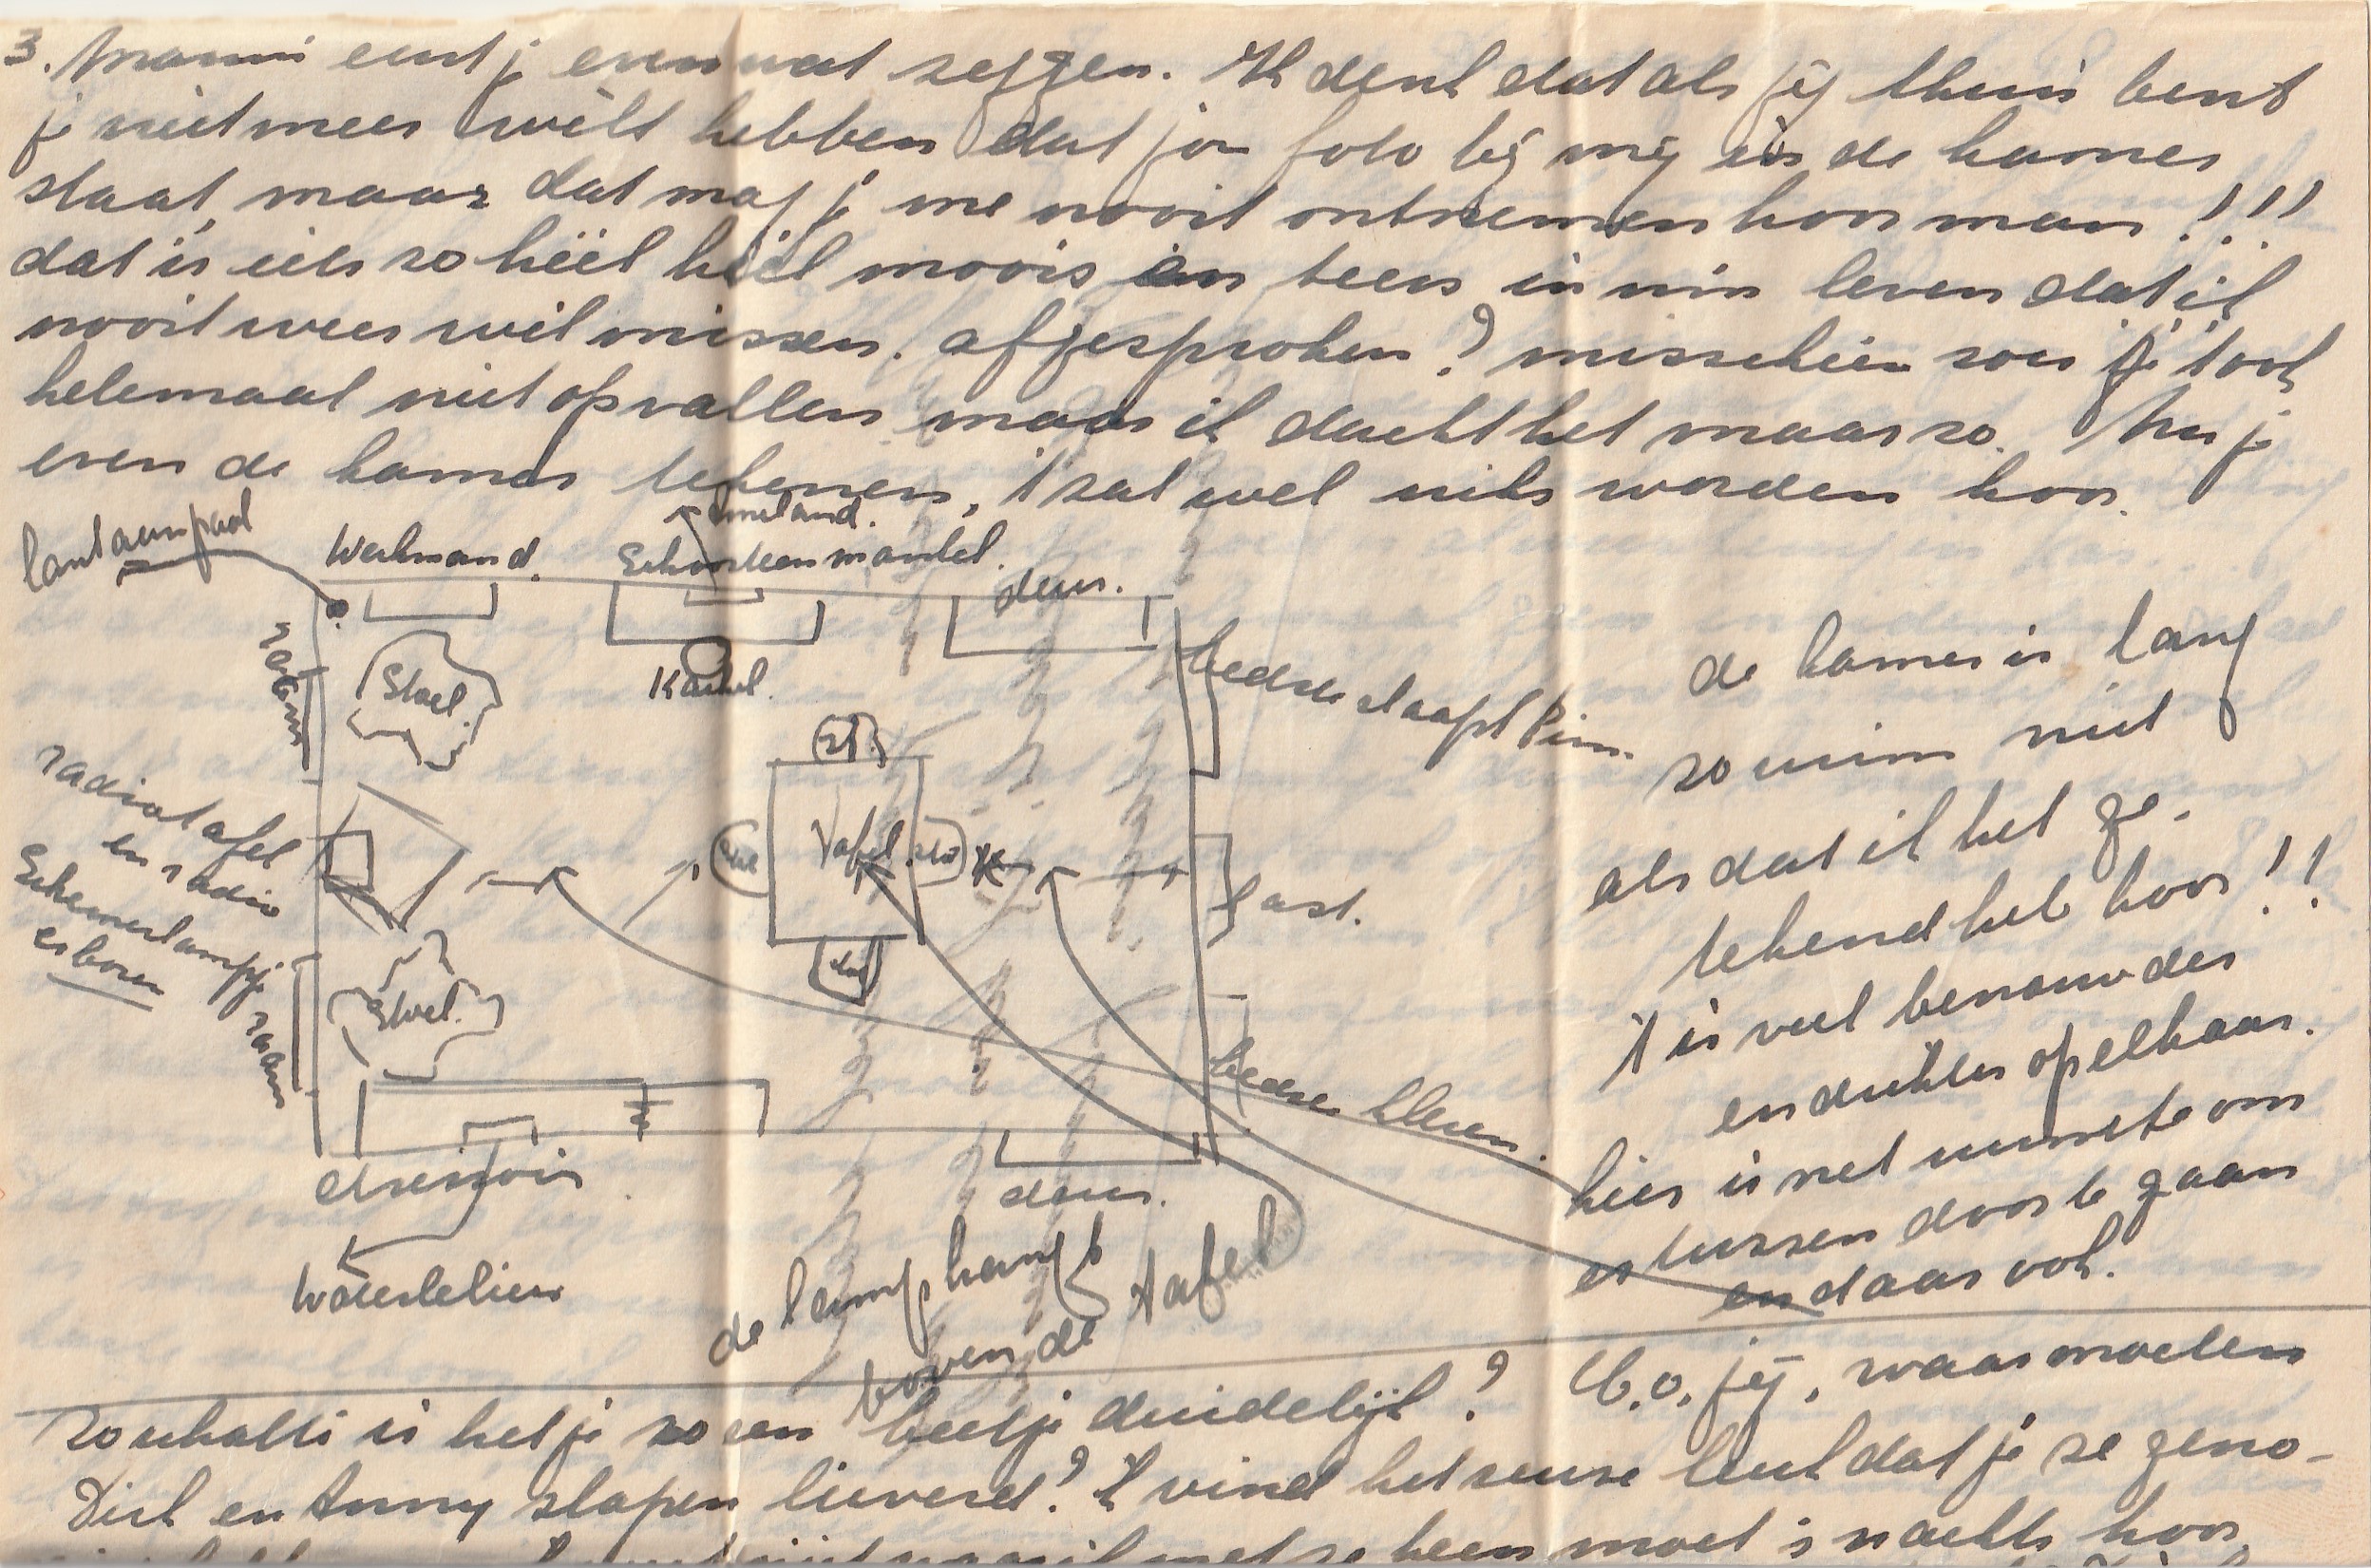 3. Mannie eerst je even wat zeggen. Ik denk dat als jij thuis bent
je niet meer wilt hebben dat jou foto bij mij in de kamer
staat, maar dat mag je me nooit ontnemen hoor man!!!
dat is iets zo héél héél moois en teers in mijn leven dat ik
nooit meer wil missen. afgesproken? misschien zou je 't ook
helemaal niet opvallen maar ik dacht het maar zo. Nu je
even de kamer tekenen, 't zal wel niks worden hoor.
lantaarnpaal
Werkmand.
Ameland.
Schoorsteenmantel.
deur.
raam
Stoel.
Kachel.
bedste slaapt Pim.
st.
radiotafel
en radio
Schemerlampje
erboven
Tafel.
kast.
Stoel.
raam
bedste kleren.
dressoir
deur.
Waterlelies
de lamp hangt
boven de tafel
de kamer is lang
zo ruim niet
als dat ik het ge-
tekend heb hoor!!
't is veel benauwder
en dichter op elkaar.
hier is net ruimte om
er tussen door te gaan
en daar ook.
zo schatti is het je zo een beetje duidelijk? O.o. jij, waar moeten
Dick en Anny slapen lieverd? 'k vind het reuze leuk dat je ze geno-
moet 's nachts hoor,